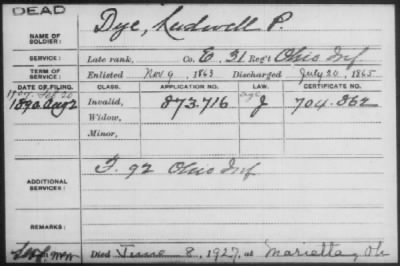 DEAD
NAME OF SOLDIER: Dye, Ludwell P.
SERVICE: Late rank, Co. E, 31 Reg't Ohio Inf
TERM OF SERVICE: Enlisted Nov. 9, 1863 Discharged July 20, 1865
DATE OF FILING. CLASS. APPLICATION NO. LAW. CERTIFICATE NO.
1890 Aug 2 Invalid, 873.716 J 704.862
Widow,
Minor,
ADDITIONAL SERVICES: F. 92 Ohio Inf
REMARKS:
Died June 8, 1927, at Marietta, Oh